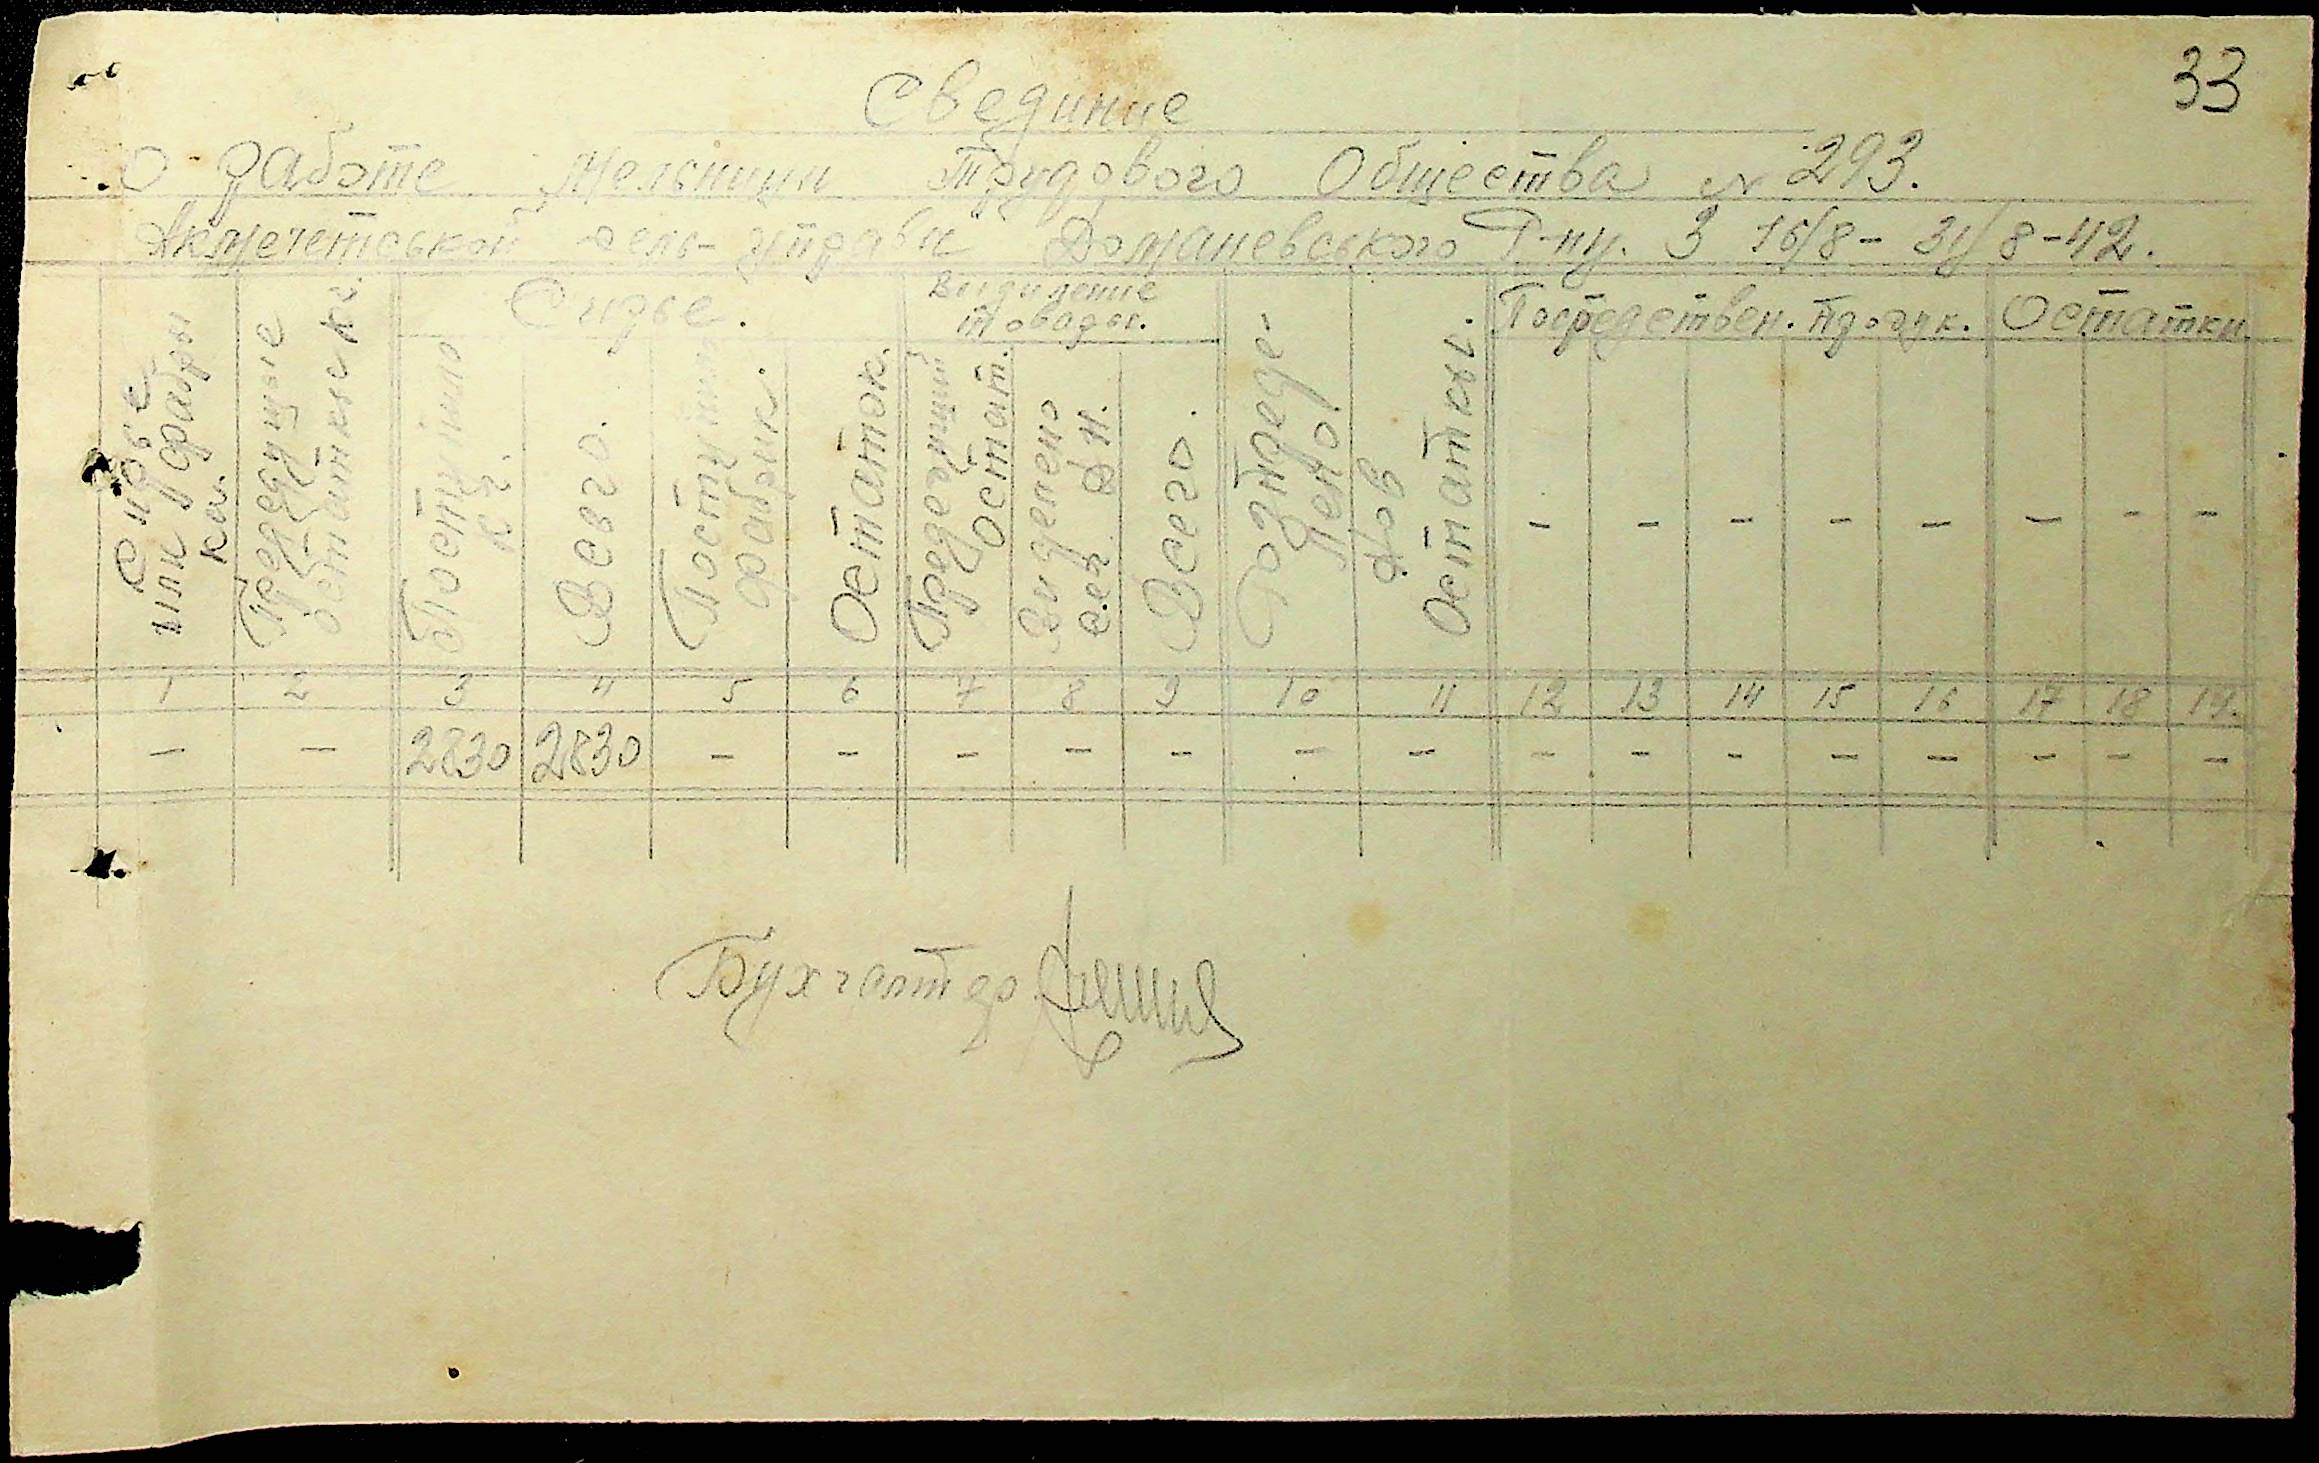 33
Свединие
о работе мельници Трудового Общества № 293.
Акмечетськой сель управи Доманевського Р-ну. З 16/8 - 31/8-42.
Сирье
или фабри
ка.
Предедущые
остатные кг.
Сирье.
Поступило
кг.
Всвго.
Поступило
фабрик.
Остаток.
товары.
Предедущий
остат.
Виделено
Всего.
Остаткы.
Посредствен. продук.
Остатки
- - - - - - - -
1 2 3 4 5 6 7 8 9 10 11 12 13 14 15 16 17 18 19.
- - 2830 2830 - - - - - - - - - - - - - - -
Бухгалтер